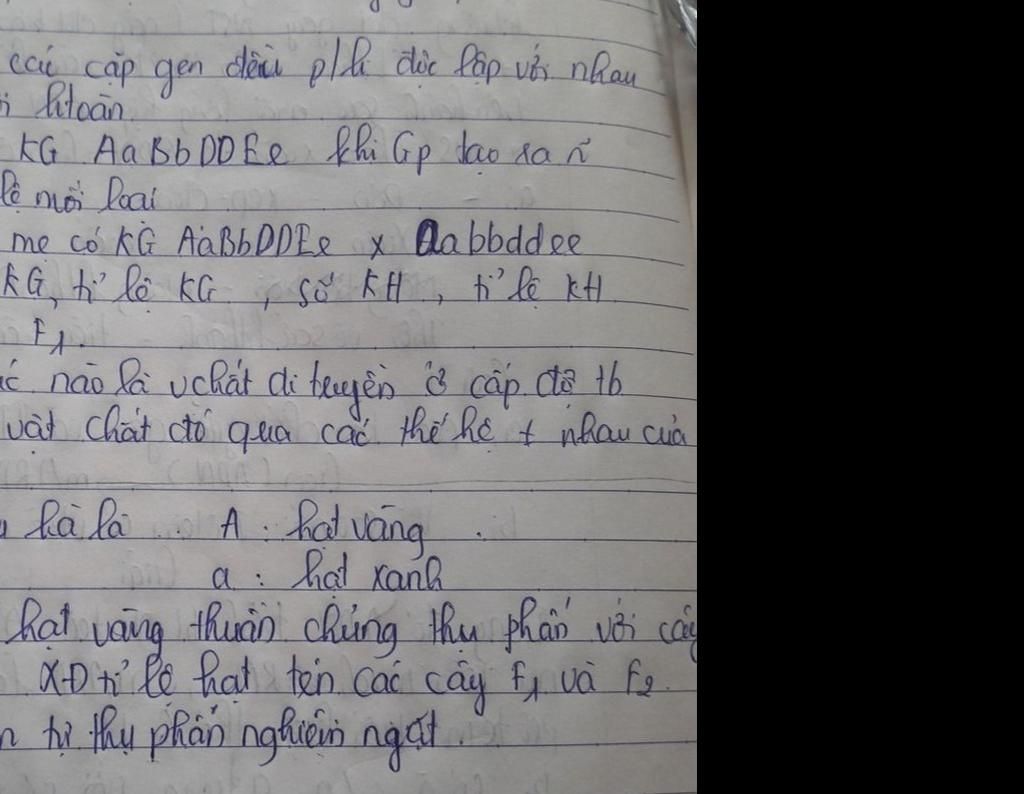 các cặp gen đều p/li độc lập với nhau
htoàn
KG AaBbDDEe khi Gp tạo ra n
lệ mỗi loại
mẹ có KG AaBbDDEe x Aabbddee
KG, tỉ lệ KG, số KH, tỉ lệ KH
F1.
nào là vchất di truyền ở cấp độ tb
vật chất đó qua các thế hệ ≠ nhau của
hà là A : hạt vàng
a : hạt xanh
hạt vàng thuần chủng thụ phấn với cây
XĐ tỉ lệ hạt trên các cây F1 và F2.
tự thụ phấn nghiêm ngặt.